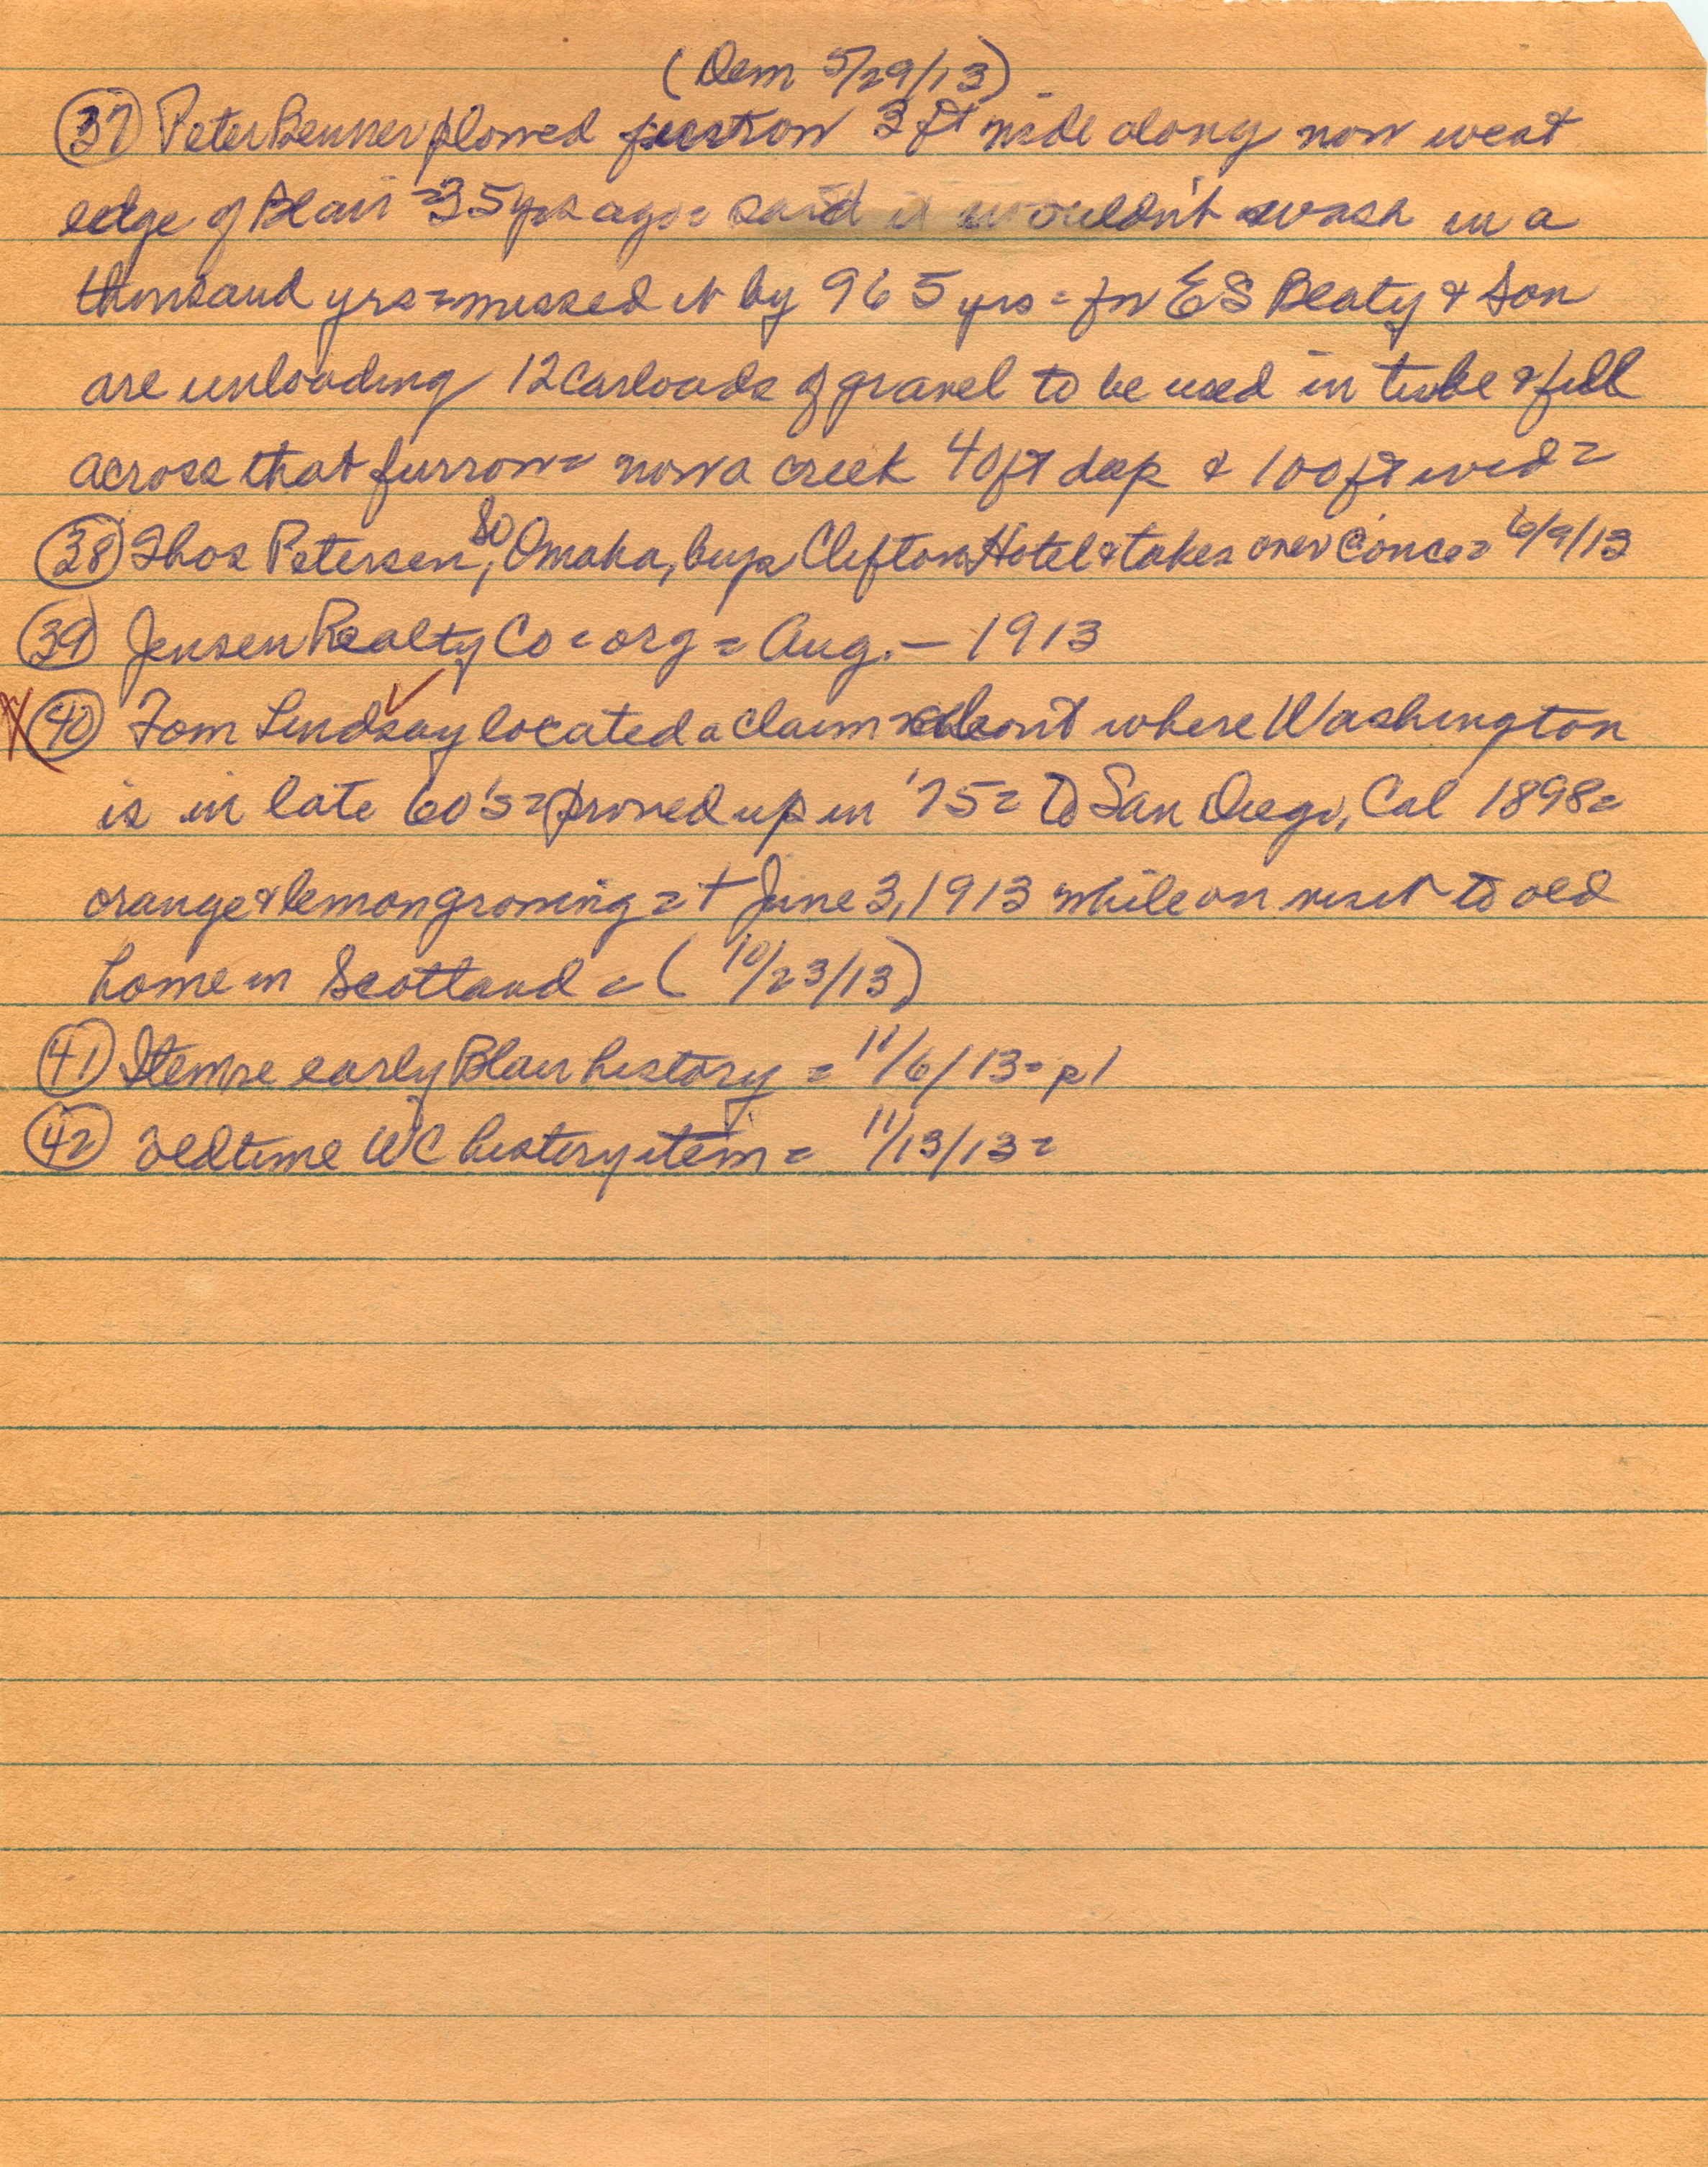 (Dem 5/29/13)
(37) Peter Benner plowed furrow 3 ft wide along now west
edge of Blair = 35 yrs ago = said it wouldn't wash in a
thousand yrs = missed it by 965 yrs = for E S Beaty & Son
are unloading 12 carloads of gravel to be used in tube & fill
across that furrow = now a creek 40 ft deep & 100 ft wid =
(38) Thos Petersen, 80, Omaha, buys Clifton Hotel & takes over @ once = 6/9/13
(39) Jensen Realty Co = org = Aug. — 1913
X (40) Tom Lindsay located a claim about where Washington
is in late 60's = proved up in '75 = to San Diego, Cal 1898 =
orange & lemon growing = + June 3, 1913 while on visit to old
home in Scotland = (10/23/13)
(41) Item re early Blair history = 11/6/13 = p1
(42) oldtime WC history item = 11/13/13 =